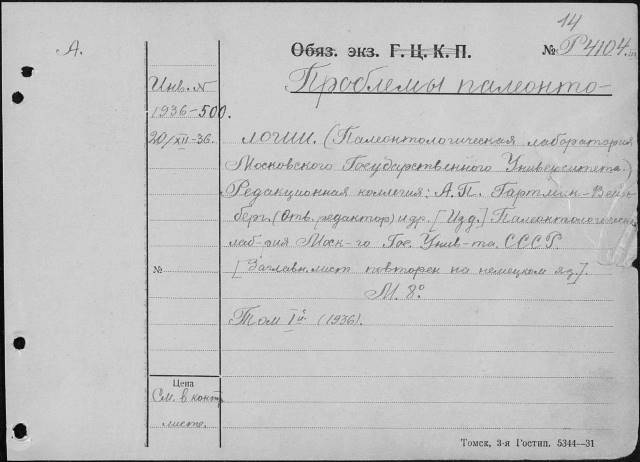 14
А.
Обяз. экз. Г. Ц. К. П.
№ Р4104.
Инв. N
Проблемы палеонто-
1936-500.
20/XII-36.
логии. (Палеонтологическая лаборатория
Московского Государственного Университета.)
Редакционная коллегия: А.П. Гартман-Вейн-
берг. (Отв. редактор) и др. [Изд.] Палеонтологическая
лаб-рия Моск-го Гос. Унив-та. СССР
№
[Заглавн. лист повторен на немецком яз.].
М. 8°
Том Iй (1936).
Цена
См. в контр.
листе.
Томск, 3-я Гостип. 5344—31